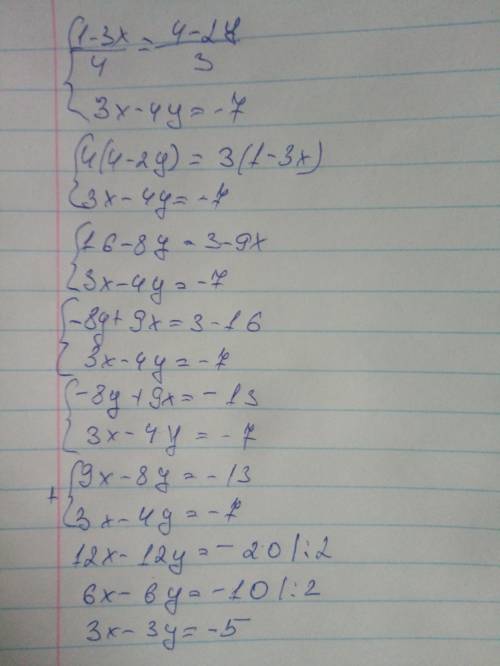 {(1-3x)/4 = (4-2y)/3
3x-4y=-7
{4(4-2y) = 3(1-3x)
3x-4y=-7
{16-8y=3-9x
3x-4y=-7
{-8y+9x=3-16
3x-4y=-7
{-8y+9x=-13
3x-4y=-7
+{9x-8y=-13
3x-4y=-7
12x-12y=-20 |:2
6x-6y=-10 |:2
3x-3y=-5